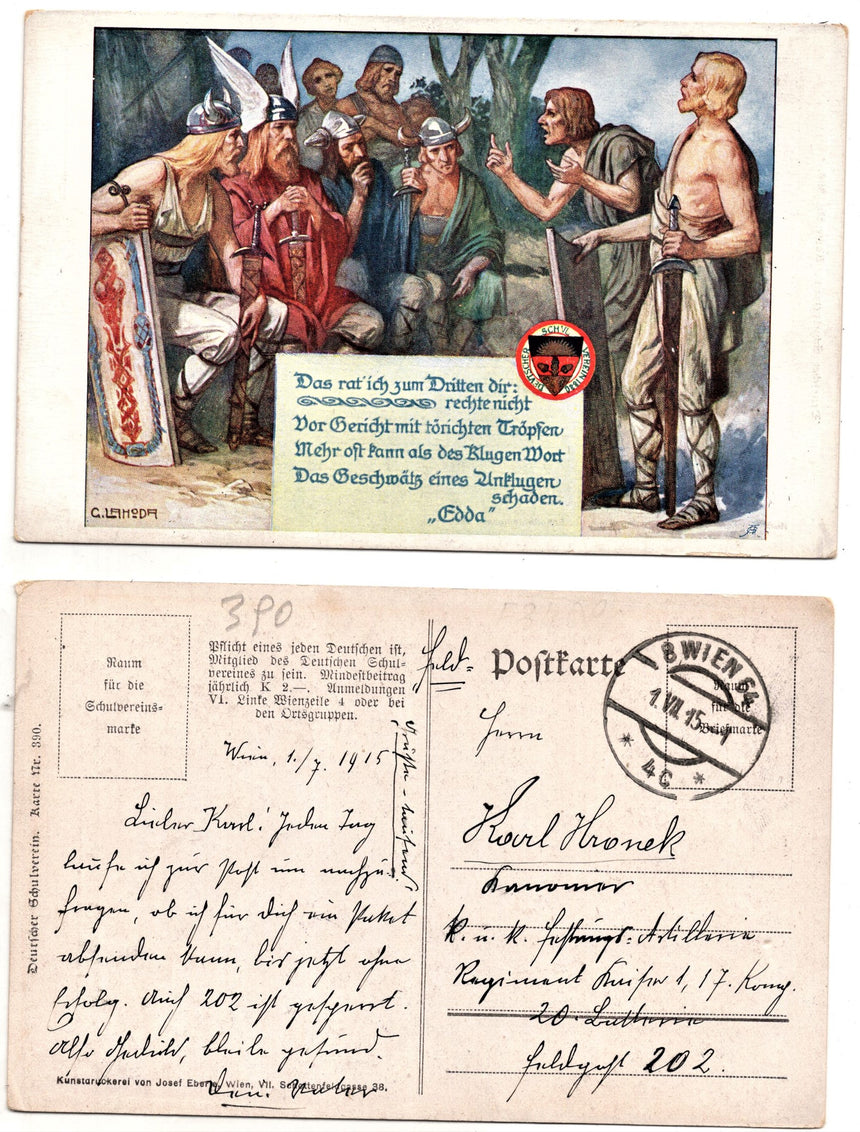 Das rat' ich zum Dritten dir:
rechte nicht
Vor Gericht mit törichten Tröpfen
Mehr oft kann als des Klugen Wort
Das Geschwätz eines Unklugen
schaden.
„Edda"
DEUTSCHER SCHUL VEREIN 1880
G. LAHODA
390
Raum
für die
Schulvereins-
marke
Pflicht eines jeden Deutschen ist,
Mitglied des Deutschen Schul-
vereines zu sein. Mindestbeitrag
jährlich K 2.—. Anmeldungen
VI. Linke Wienzeile 4 oder bei
den Ortsgruppen.
Deutscher Schulverein. Karte Nr. 390.
Wien, 1./7. 1915
Lieber Karl! Jeden Tag
laufe ich zur Post um nachzu-
fragen, ob ich für Dich ein Paket
absenden kann, bis jetzt ohne
Erfolg. Auch 202 ist gesperrt.
Also Geduld, bleibe gesund.
Dein Vater
Grüße
Kunstdruckerei von Josef Eberle, Wien, VII. Schottenfeldgasse 38.
Feld-
Postkarte
Raum
für die
Briefmarke
8 WIEN 64
1.VII.15
* 4c *
Herrn
Karl Hronek
Kanonier
k. u. k. Festungs-Artillerie
Regiment Kaiser 1, 17. Komp.
20. Batterie
Feldpost 202.